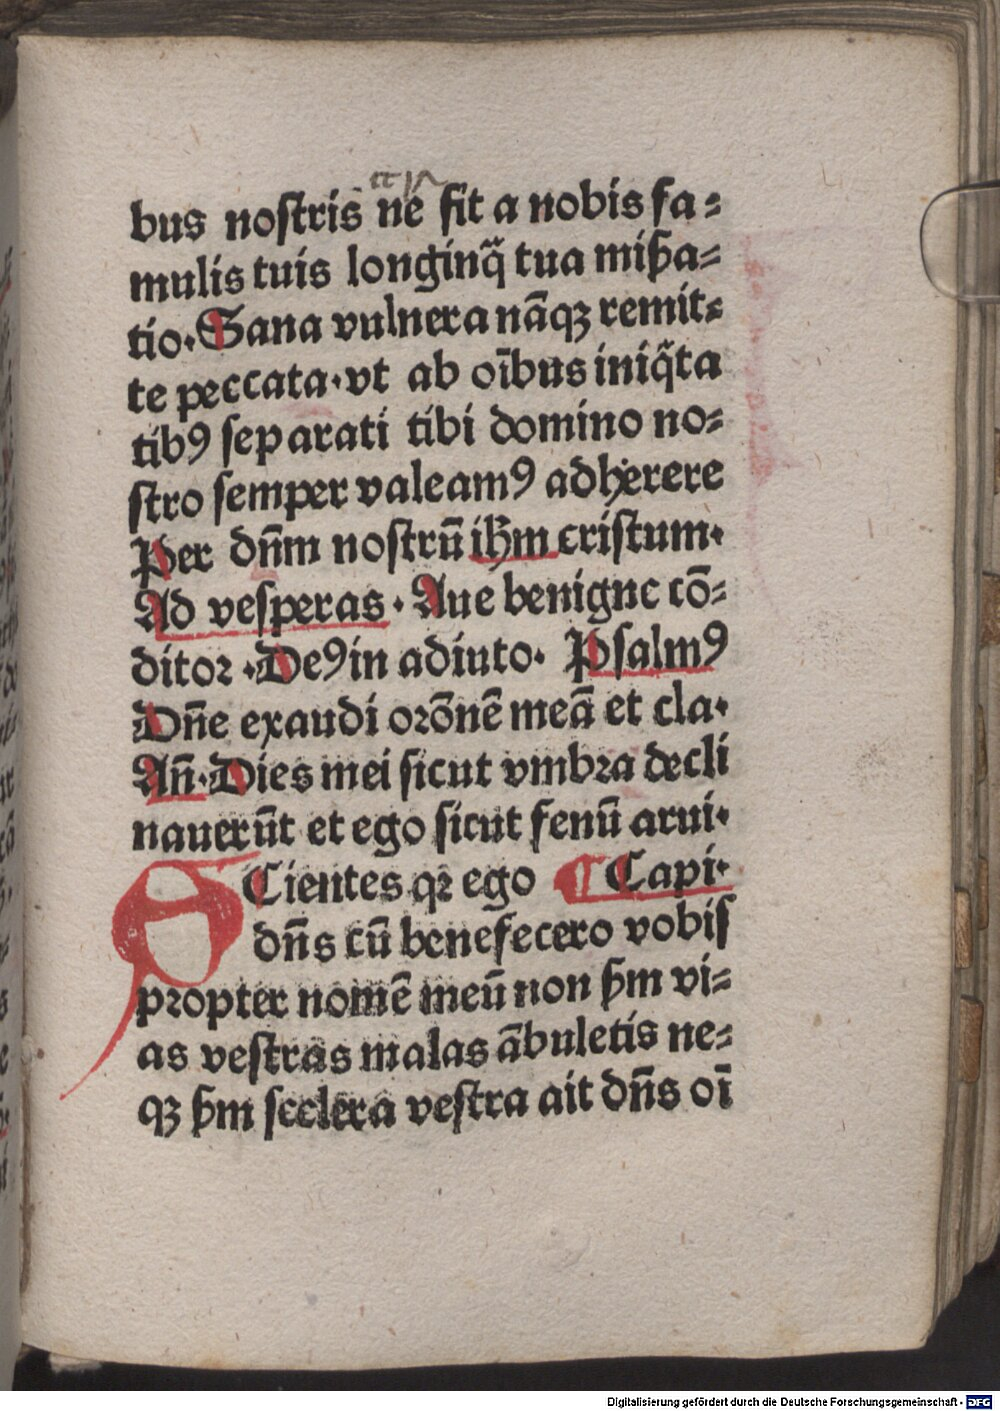 bus nostris ne fit a nobis fa⸗
mulis tuis longinq̃ tua mißa⸗
tio. Sana vulnera nāqꝫ remit⸗
te peccata. vt ab oībus iniq̃ta
tibꝰ separati tibi domino no⸗
stro semper valeamꝰ adherere
Per dn̄m nostrū ihm̄ cristum.
Ad vesperas. Aue benigne cō⸗
ditor. Deꝰ in adiuto. Psalmꝰ
Dn̄e exaudi orōnē meā et cla.
An̄. Dies mei sicut vmbra decli
nauerūt et ego sicut fenū arui.
SCientes qꝛ ego ¶ Capi.
dn̄s cū benefecero vobis
propter nomē meū non ẜm vi⸗
as vestras malas ābuletis ne⸗
qꝫ ẜm scelera vestra ait dn̄s oī
Digitalisierung gefördert durch die Deutsche Forschungsgemeinschaft - DFG